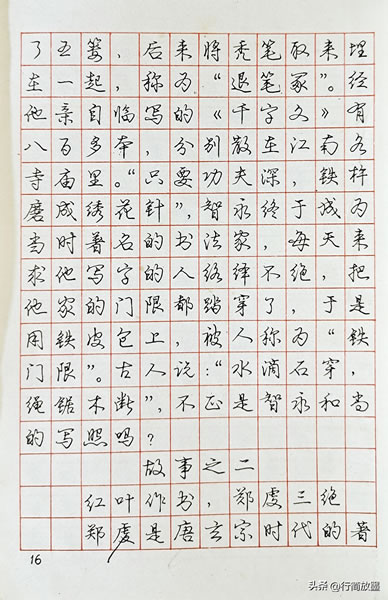 了五篓，后来将秃笔取来埋
在一起，称为“退笔冢”。经
他亲自临写的《千字文》有
八百多本，分别散在江南各
寺庙里。“只要功夫深，铁杵
磨成绣花针”，智永终于成为
当时著名的书法家，每天来
求他写字的人络绎不绝，把
他家的门限都踏穿了，于是
用铁皮包上，被人称为“铁
门限”。古人说：“水滴石穿，
绳锯木断”，不正是智永和尚
的写照吗？
故事之二
红叶作书，郑虔三绝
郑虔是唐玄宗时代的著
16
头条@行简放噩